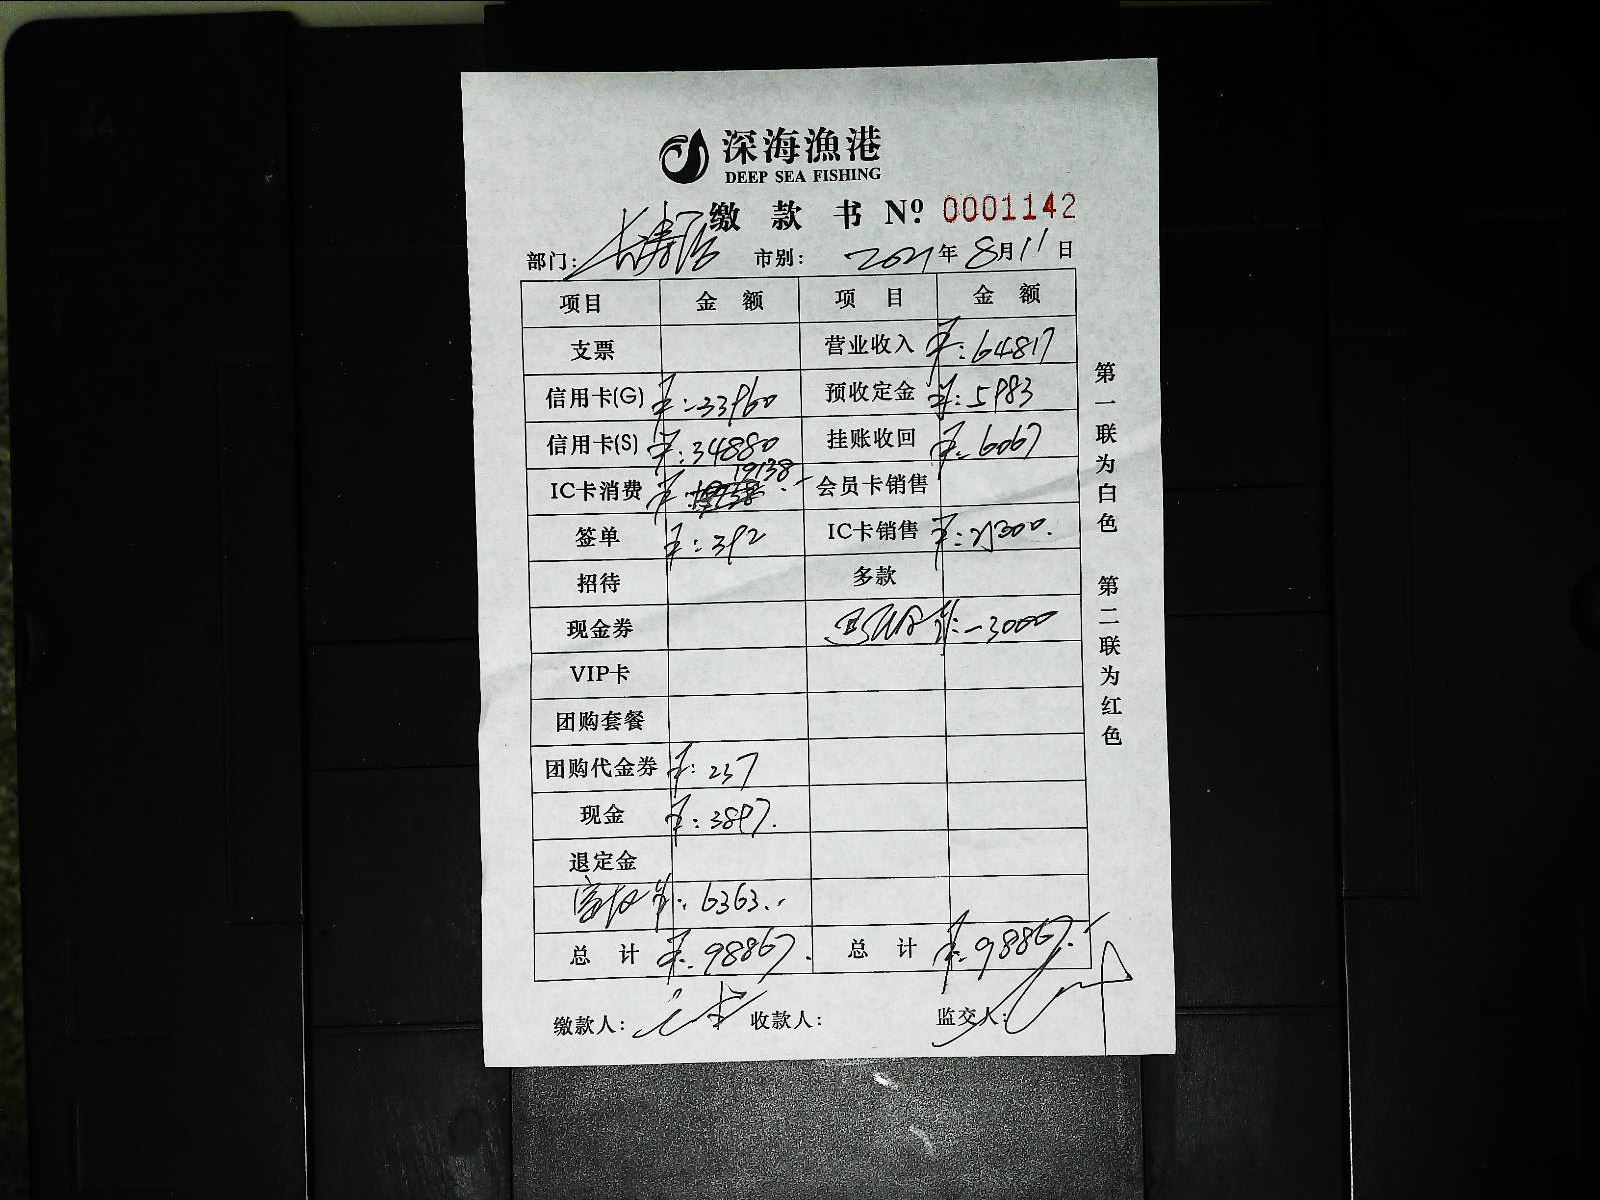 深海漁港
DEEP SEA FISHING
缴款书 Nº 0001142
部门: 长寿路 市别: 2021年8月11日
项目 金额 项目 金额
支票 营业收入 ¥:64817
信用卡(G) ¥:33960 预收定金 ¥:5983
信用卡(S) ¥:34880 挂账收回 ¥:6067
IC卡消费 ¥:19138.- 会员卡销售
签单 ¥:392 IC卡销售 ¥:25000.
招待 多款
现金券 ¥:-3000
VIP卡
团购套餐
团购代金券 ¥:237
现金 ¥:3897.
退定金
¥:6363.-
总计 ¥:98867. 总计 ¥:98867.-
缴款人: 收款人: 监交人:
第一联为白色 第二联为红色